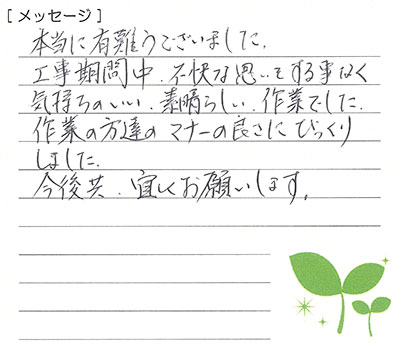 [メッセージ]
本当に有難うございました.
工事期間中.不快な思いをする事なく
気持ちのいい.素晴らしい.作業でした.
作業の方達のマナーの良さにびっくり
しました.
今後共.宜しくお願いします.